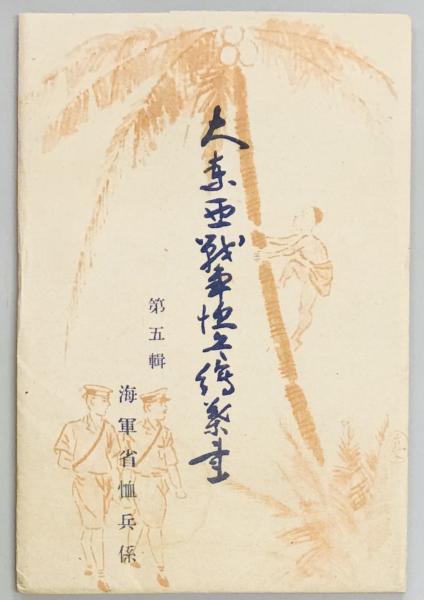 大東亜戦争恤兵絵葉書
第五輯
海軍省恤兵係